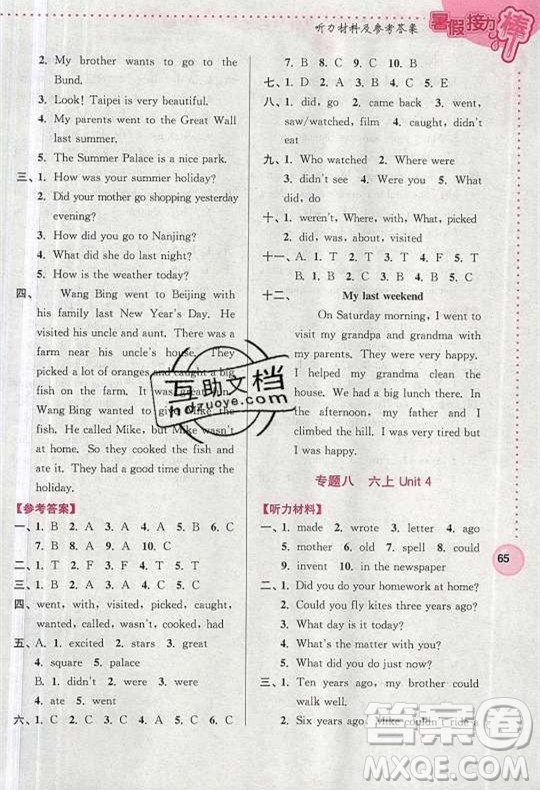 听力材料及参考答案
暑假接力棒
2. My brother wants to go to the
Bund.
3. Look! Taipei is very beautiful.
4. My parents went to the Great Wall
last summer.
5. The Summer Palace is a nice park.
三、1. How was your summer holiday?
2. Did your mother go shopping yesterday
evening?
3. How did you go to Nanjing?
4. What did she do last night?
5. How is the weather today?
四、 Wang Bing went to Beijing with
his family last New Year's Day. He
visited his uncle and aunt. There was a
farm near his uncle's house. They
picked a lot of oranges and caught big
fish on the farm. It was great fun.
Wang Bing wanted to give Mike the
fish. He called Mike, but Mike wasn't
at home. So they cooked the fish and
ate them. They all had a good time
during the holiday.
【参考答案】
一、1. B 2. A 3. A 4. B 5. B 6. C
7. B 8. B 9. A 10. C
二、1. B 2. A 3. C 4. A 5. B
三、1. C 2. C 3. B 4. A 5. B
四、went, with, visited, picked, caught,
wanted, wasn't, cooked, had
五、A. 1. excited 2. stars 3. great
4. square 5. palace
B. 1. didn't 2. wanted 3. would
4. ate 5. went
六、1. C 2. B 3. C 4. A 5. C 6. C
7. B 8. C 9. C 10. B
七、1. D 2. A 3. B 4. C 5. E
八、1. did, go 2. came back 3. went,
saw/watched, film 4. caught, didn't
eat
九、1. Who watched 2. Where were
3. didn't see 4. Were you 5. What
did, do
十一、1. weren't, Where, with, What, picked
2. did, was, ate, had
十一、A. 1. T 2. T 3. F 4. T 5. F
B. 1. B 2. C 3. A 4. C
十二、 My last weekend
On Saturday morning, I went to
visit my grandpa and grandma with
my parents. They were very happy.
I helped my grandma clean the
house. We had a big lunch there. In
the afternoon, my father and I
climbed the hill. I was very happy.
专题八 六上 Unit 4
【听力材料】
一、1. made 2. wrote 3. letter 4. ago
5. mother 6. old 7. spell 8. could
9. invent 10. in the newspaper
二、1. Did you do your homework at home?
2. Could you fly kites three years ago?
3. What day is it today?
4. What's the matter with you?
5. What did you do just now?
三、1. Ten years ago, my brother could
walk well.
2. Six years ago, Mike couldn't ride a
65
互助文档
hdzuoye.com
答案圈
MXQE.COM